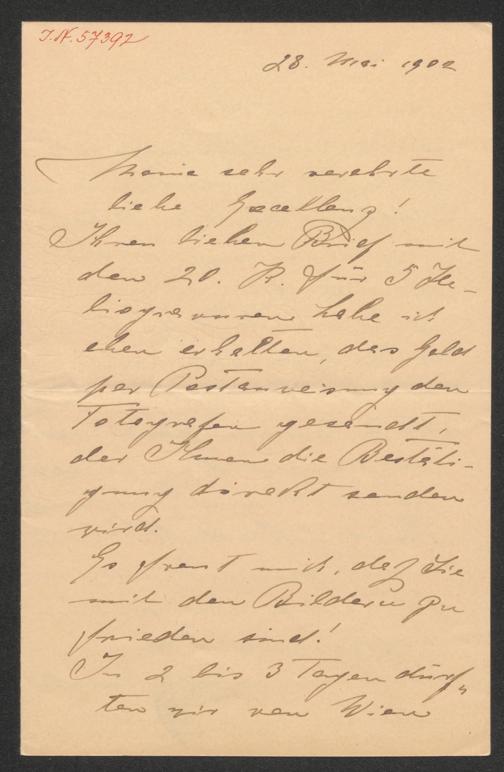 I.N. 57392
28. Mai 1902
Meine sehr verehrte
liebe Excellenz!
Ihren lieben Brief mit
den 20. K. für 5 He-
liogravuren habe ich
eben erhalten, das Geld
per Postanweisung den
Fotografen gesandt,
der Ihnen die Bestäti-
gung direkt senden
wird.
Es freut mich, daß Sie
mit den Bildern zu
frieden sind!
In 2 bis 3 Tagen dürf-
ten wir von Wien